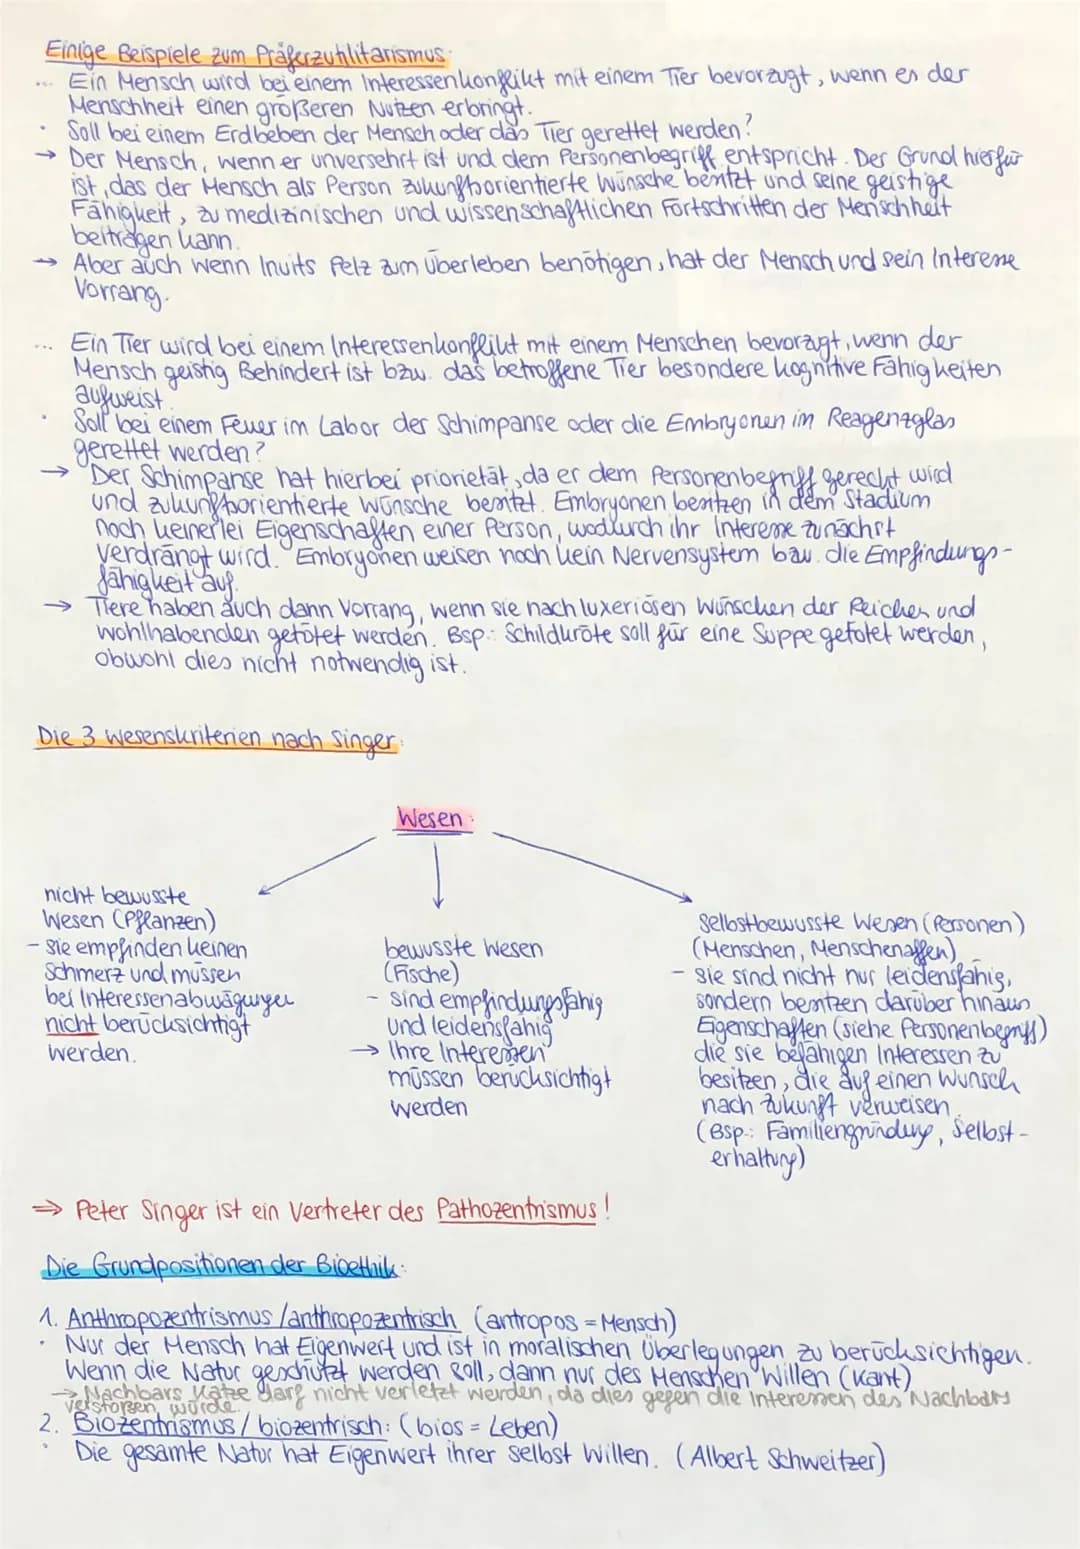 Einige Beispiele zum Präferzutilitarismus:
... Ein Mensch wird bei einem Interessenkonflikt mit einem Tier bevorzugt, wenn er der
Menschheit einen größeren Nutzen erbringt.
· Soll bei einem Erdbeben der Mensch oder das Tier gerettet werden?
→ Der Mensch, wenn er unversehrt ist und dem Personenbegriff entspricht. Der Grund hierfür
ist, das der Mensch als Person zukunftsorientierte Wünsche besitzt und seine geistige
Fähigkeit, zu medizinischen und wissenschaftlichen Fortschritten der Menschheit
beitragen kann.
→ Aber auch wenn Inuits Pelz zum überleben benötigen, hat der Mensch und sein Interesse
Vorrang.
... Ein Tier wird bei einem Interessenkonflikt mit einem Menschen bevorzugt, wenn der
Mensch geistig Behindert ist bzw. das betroffene Tier besondere kognitive Fähigkeiten
aufweist.
· Soll bei einem Feuer im Labor der Schimpanse oder die Embryonen im Reagenzglas
gerettet werden?
→ Der Schimpanse hat hierbei priorietät, da er dem Personenbegriff gerecht wird
und zukunftsorientierte Wünsche besitzt. Embryonen besitzen in dem Stadium
noch keinerlei Eigenschaften einer Person, wodurch ihr Interesse zunächst
verdrängt wird. Embryonen weisen noch kein Nervensystem bzw. die Empfindungs-
fähigkeit auf.
→ Tiere haben auch dann Vorrang, wenn sie nach luxeriösen Wünschen der Reichen und
wohlhabenden getötet werden. Bsp.: Schildkröte soll für eine Suppe getötet werden,
obwohl dies nicht notwendig ist.
Die 3 Wesenskriterien nach Singer:
Wesen:
nicht bewusste
Wesen (Pflanzen)
- sie empfinden keinen
Schmerz und müssen
bei Interessenabwägungen
nicht berücksichtigt
werden.
bewusste Wesen
(Fische)
- sind empfindungsfähig
und leidensfähig
→ Ihre Interessen
müssen berücksichtigt
werden
Selbstbewusste Wesen (Personen)
(Menschen, Menschenaffen)
- sie sind nicht nur leidensfähig,
sondern besitzen darüber hinaus
Eigenschaften (siehe Personenbegriff)
die sie befähigen Interessen zu
besitzen, die auf einen Wunsch
nach Zukunft verweisen.
(Bsp.: Familiengründung, Selbst-
erhaltung)
⇒ Peter Singer ist ein Vertreter des Pathozentrismus!
Die Grundpositionen der Bioethik:
1. Anthropozentrismus/anthropozentrisch (antropos = Mensch)
· Nur der Mensch hat Eigenwert und ist in moralischen Überlegungen zu berücksichtigen.
Wenn die Natur geschützt werden soll, dann nur des Menschen Willen (Kant)
→ Nachbars Katze darf nicht verletzt werden, da dies gegen die Interessen des Nachbars
verstoßen würde.
2. Biozentrismus/biozentrisch: (bios = Leben)
· Die gesamte Natur hat Eigenwert ihrer selbst Willen. (Albert Schweitzer)